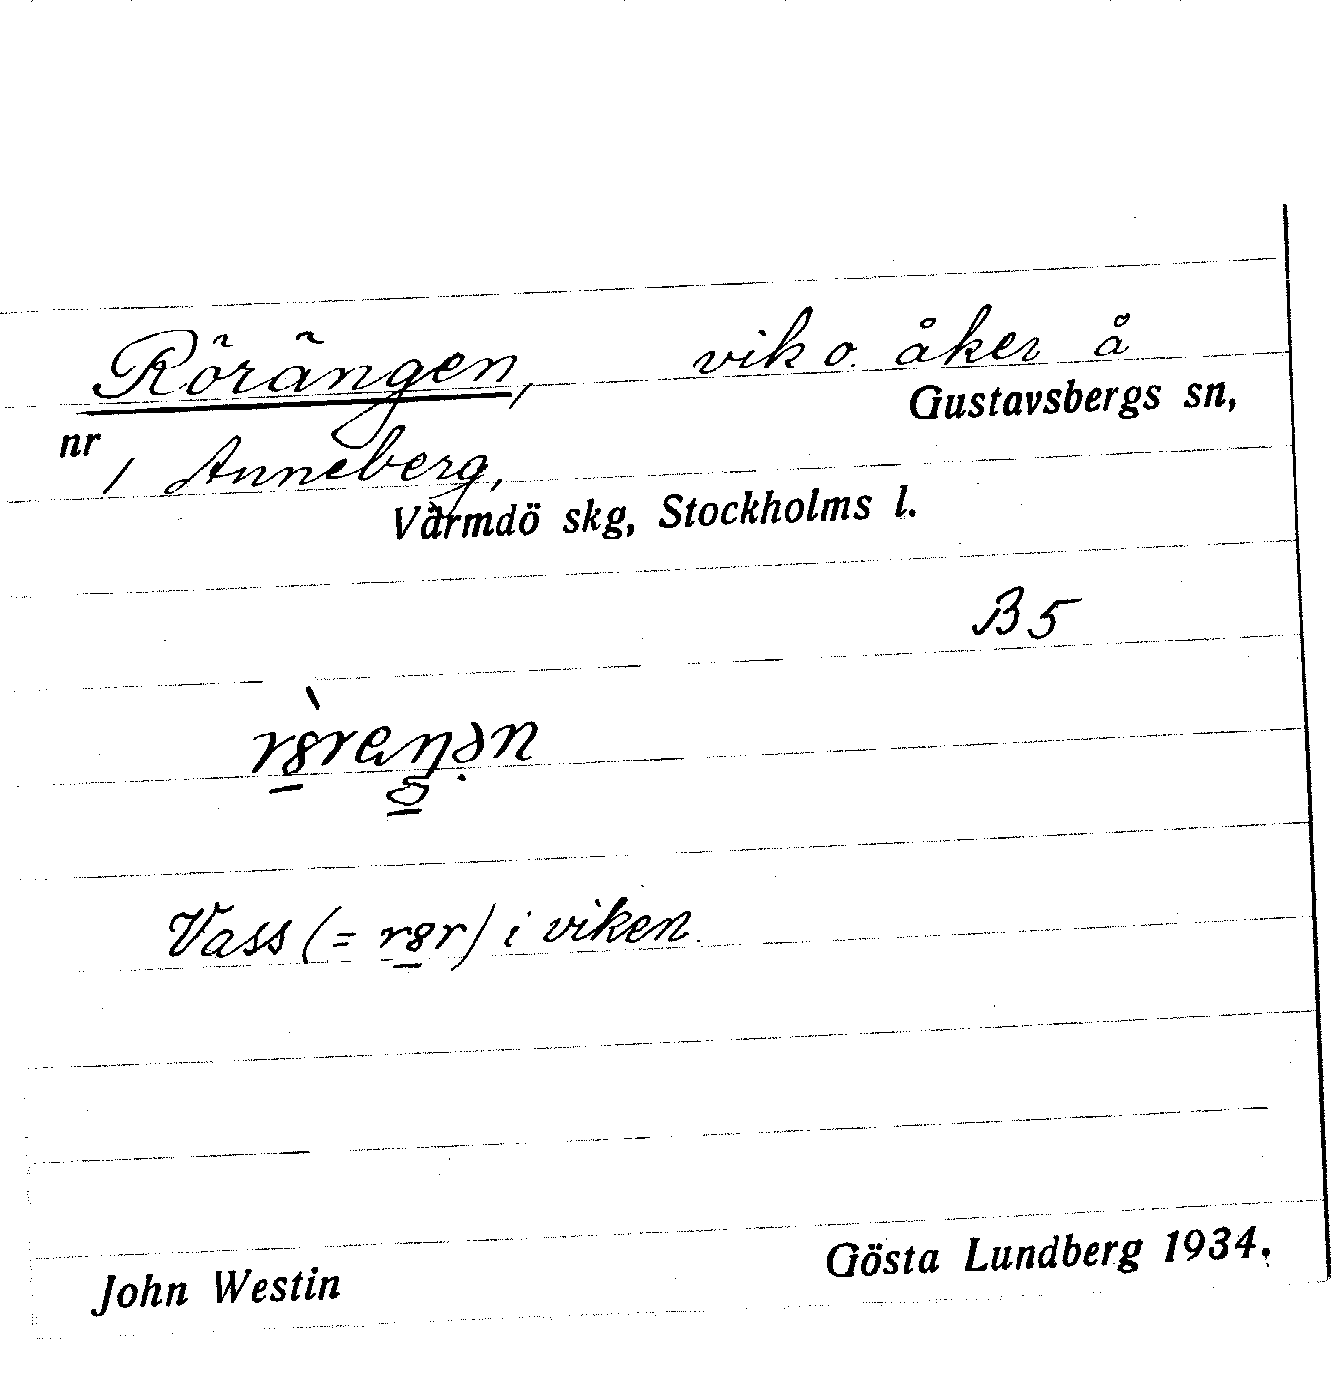 Rörängen, vik o. åker å
Gustavsbergs sn,
nr 1 Anneberg,
Värmdö skg, Stockholms l.
B5
Vass (= r8r) i viken.
John Westin
Gösta Lundberg 1934.